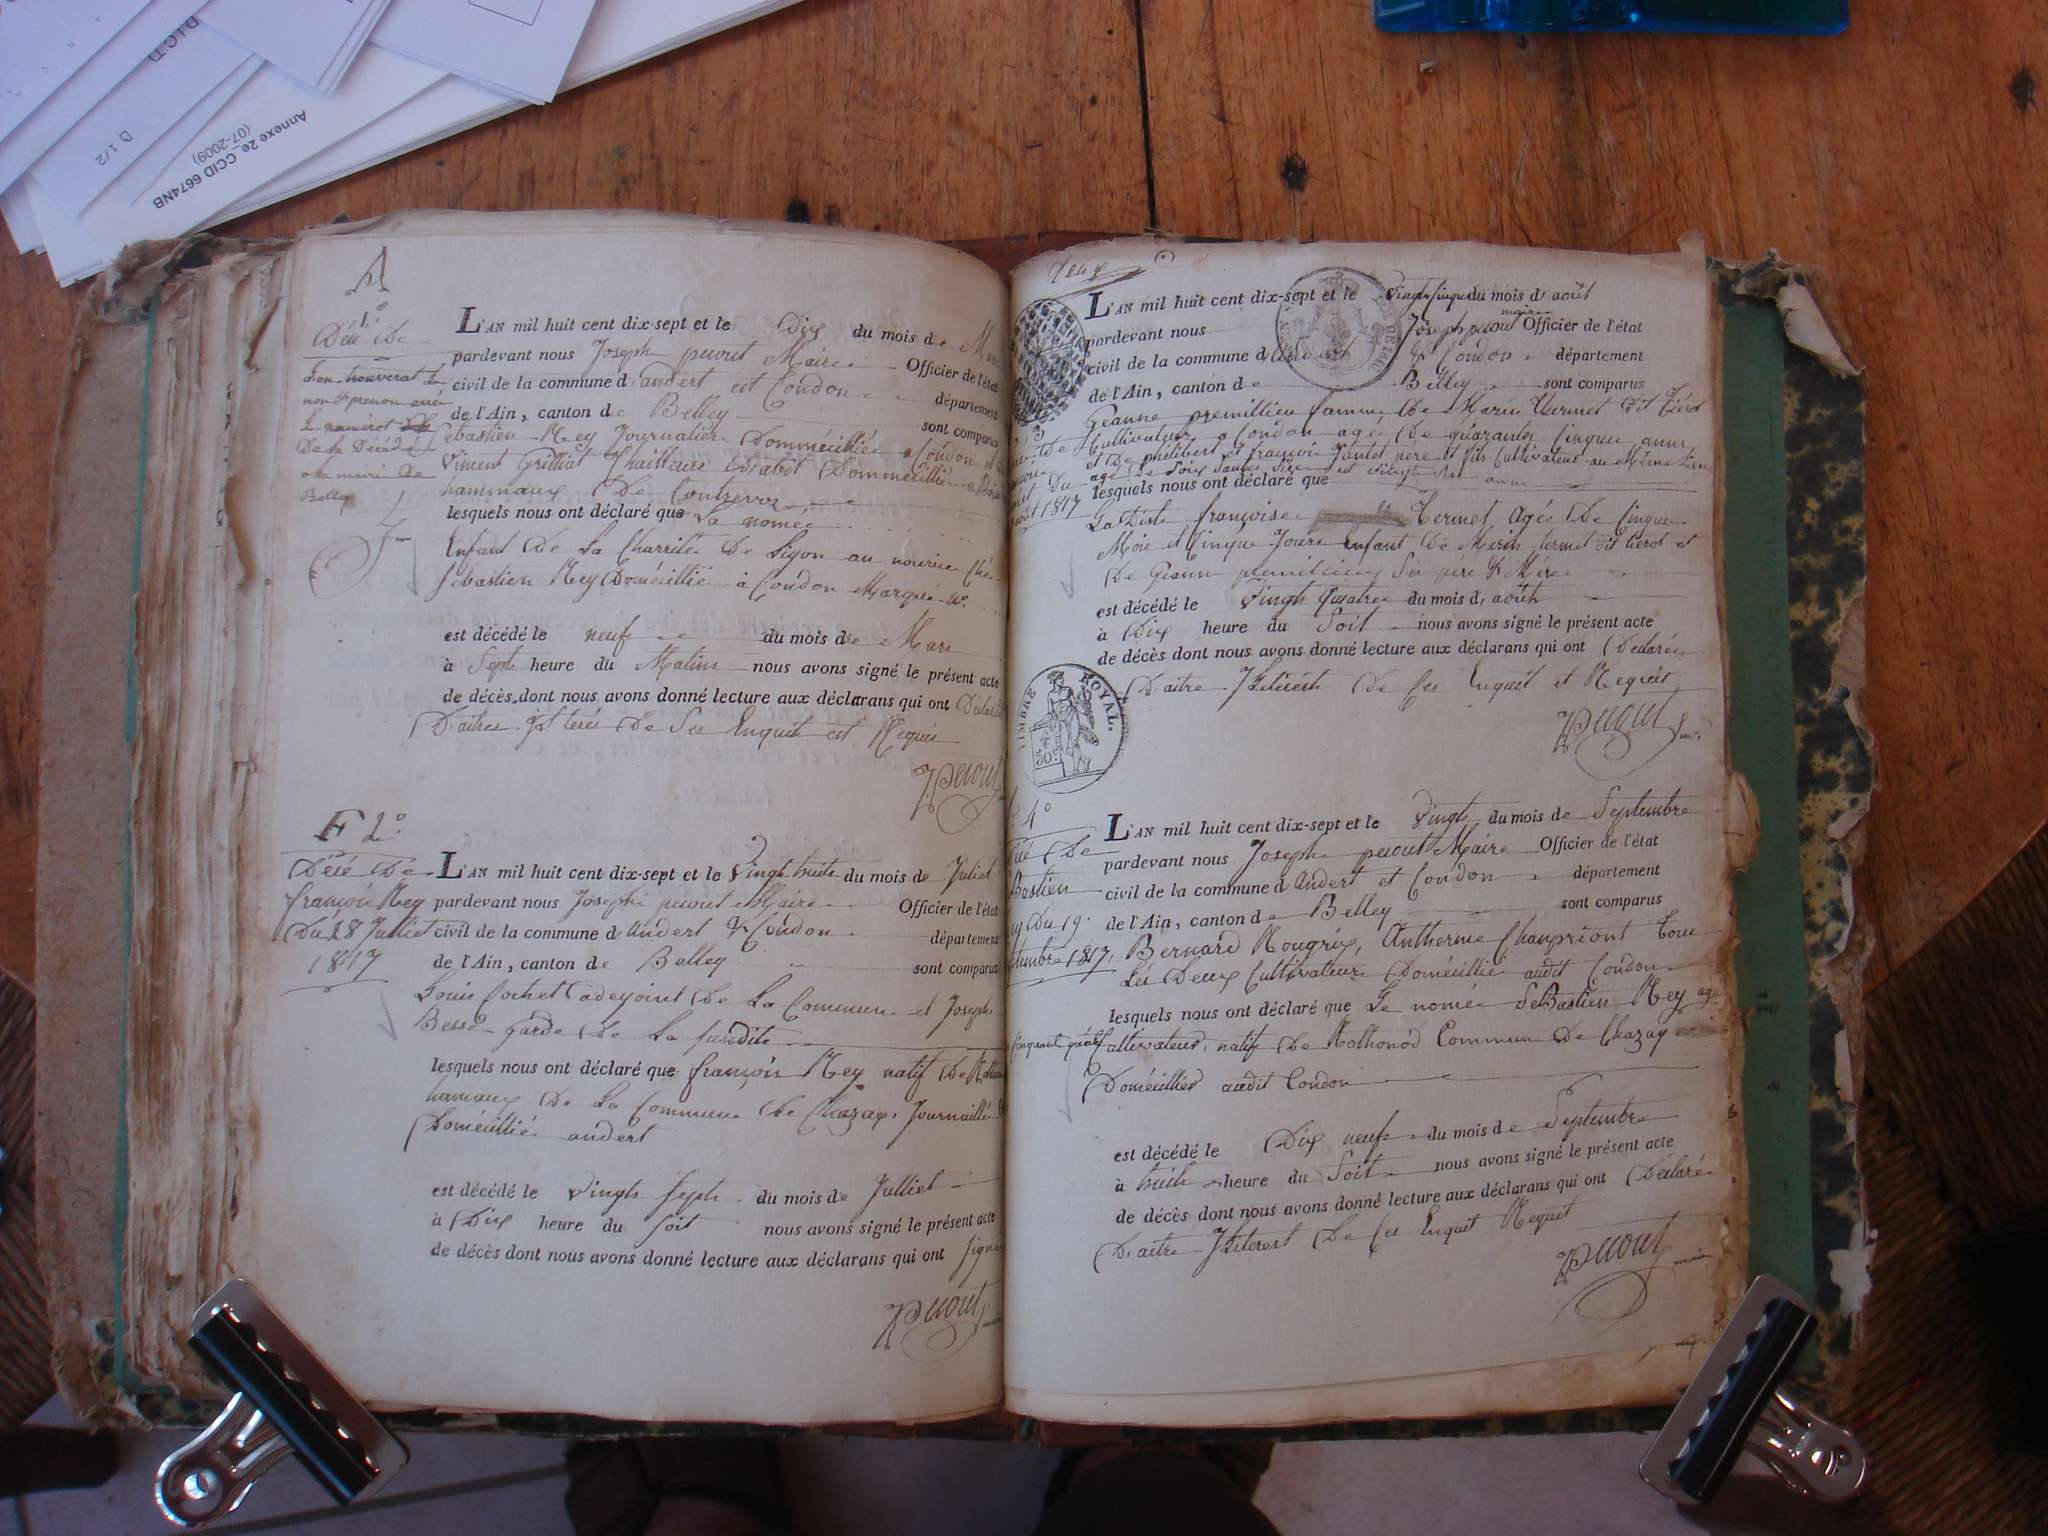 DICTD
D 1/2
Annexe 2e_CCID 6674NB
(07-2009)
A
1.º
Décé De
L'AN mil huit cent dix-sept et le Dix du mois de Mars
pardevant nous Joseph Maire Officier de l'état
civil de la commune d andert est Condon département
de l'Ain, canton de Belley sont comparus
Sebastien Rey Journalier Domméeillié a Condon
Vincent Domméeillié
hammaux De Contrevoz
lesquels nous ont déclaré que La nomée
Enfant De La Charrité De Liyon au nourice Ché
Sebastien Rey Doméeillié à Condon Marquée
est décédé le neuf du mois de Mars
à Sept heure du Matins nous avons signé le présent acte
de décès dont nous avons donné lecture aux déclarans qui ont Déclaré
De Ses Enquit est Requis
F 2º
Décé De
françois Rey
Du 28 Julliet
1817
L'AN mil huit cent dix-sept et le Vingt huit du mois de Juliet
pardevant nous Joseph Maire Officier de l'état
civil de la commune d Andert & Condon département
de l'Ain, canton de Belley sont comparus
Louis adejoint De La Commune et Joseph
garde De La susdite
lesquels nous ont déclaré que françois Rey natif De
hamaux De La Commune De Chazay Journaillié
Doméeillié andert
est décédé le Vingt Sept du mois de Julliet
à Dix heure du Soit nous avons signé le présent acte
de décès dont nous avons donné lecture aux déclarans qui ont signé
Deux
L'AN mil huit cent dix-sept et le Vingt Cinque du mois d août
pardevant nous Joseph maire Officier de l'état
civil de la commune d & Condon département
de l'Ain, canton de Belley sont comparus
Geanne premillieu famme De Marin Termet Dit tierot
Cultivateur a Condon agé De quarante Cinque annes
et De phelibert et françoi pere et fils Cultivateur au Même Lieu
lesquels nous ont déclaré que
La Diste françoise Termet Agée De Cinque
Mois et Cinque Jours Enfant De Marin termet dit tierot et
De Geann Ses pere & Mère
est décédé le Vingt Quatre du mois d août
à Dix heure du Soit nous avons signé le présent acte
de décès dont nous avons donné lecture aux déclarans qui ont Déclaré
D'aitre De Ces Enquit et Requit
3
août 1817
TIMBRE ROYAL.
50c
4º
Décé De
Bastien
Rey Du 19
septembre 1817
L'AN mil huit cent dix-sept et le Vingt du mois de Septembre
pardevant nous Joseph Maire Officier de l'état
civil de la commune d Andert et Condon département
de l'Ain, canton de Belley sont comparus
Bernard Rougrix, Antherme Chanpriont Tous
Les Deux Cultivateur Doméeillié audit Condon
lesquels nous ont déclaré que Le nomée Sebastien Rey agé
Cultivateur, natif De Rothonod Commune De Chazay
Doméeillié audit Condon
est décédé le Dix neuf du mois de Septembre
à huit heure du Soit nous avons signé le présent acte
de décès dont nous avons donné lecture aux déclarans qui ont Déclaré
D'aitre De Ces Enquit Requit